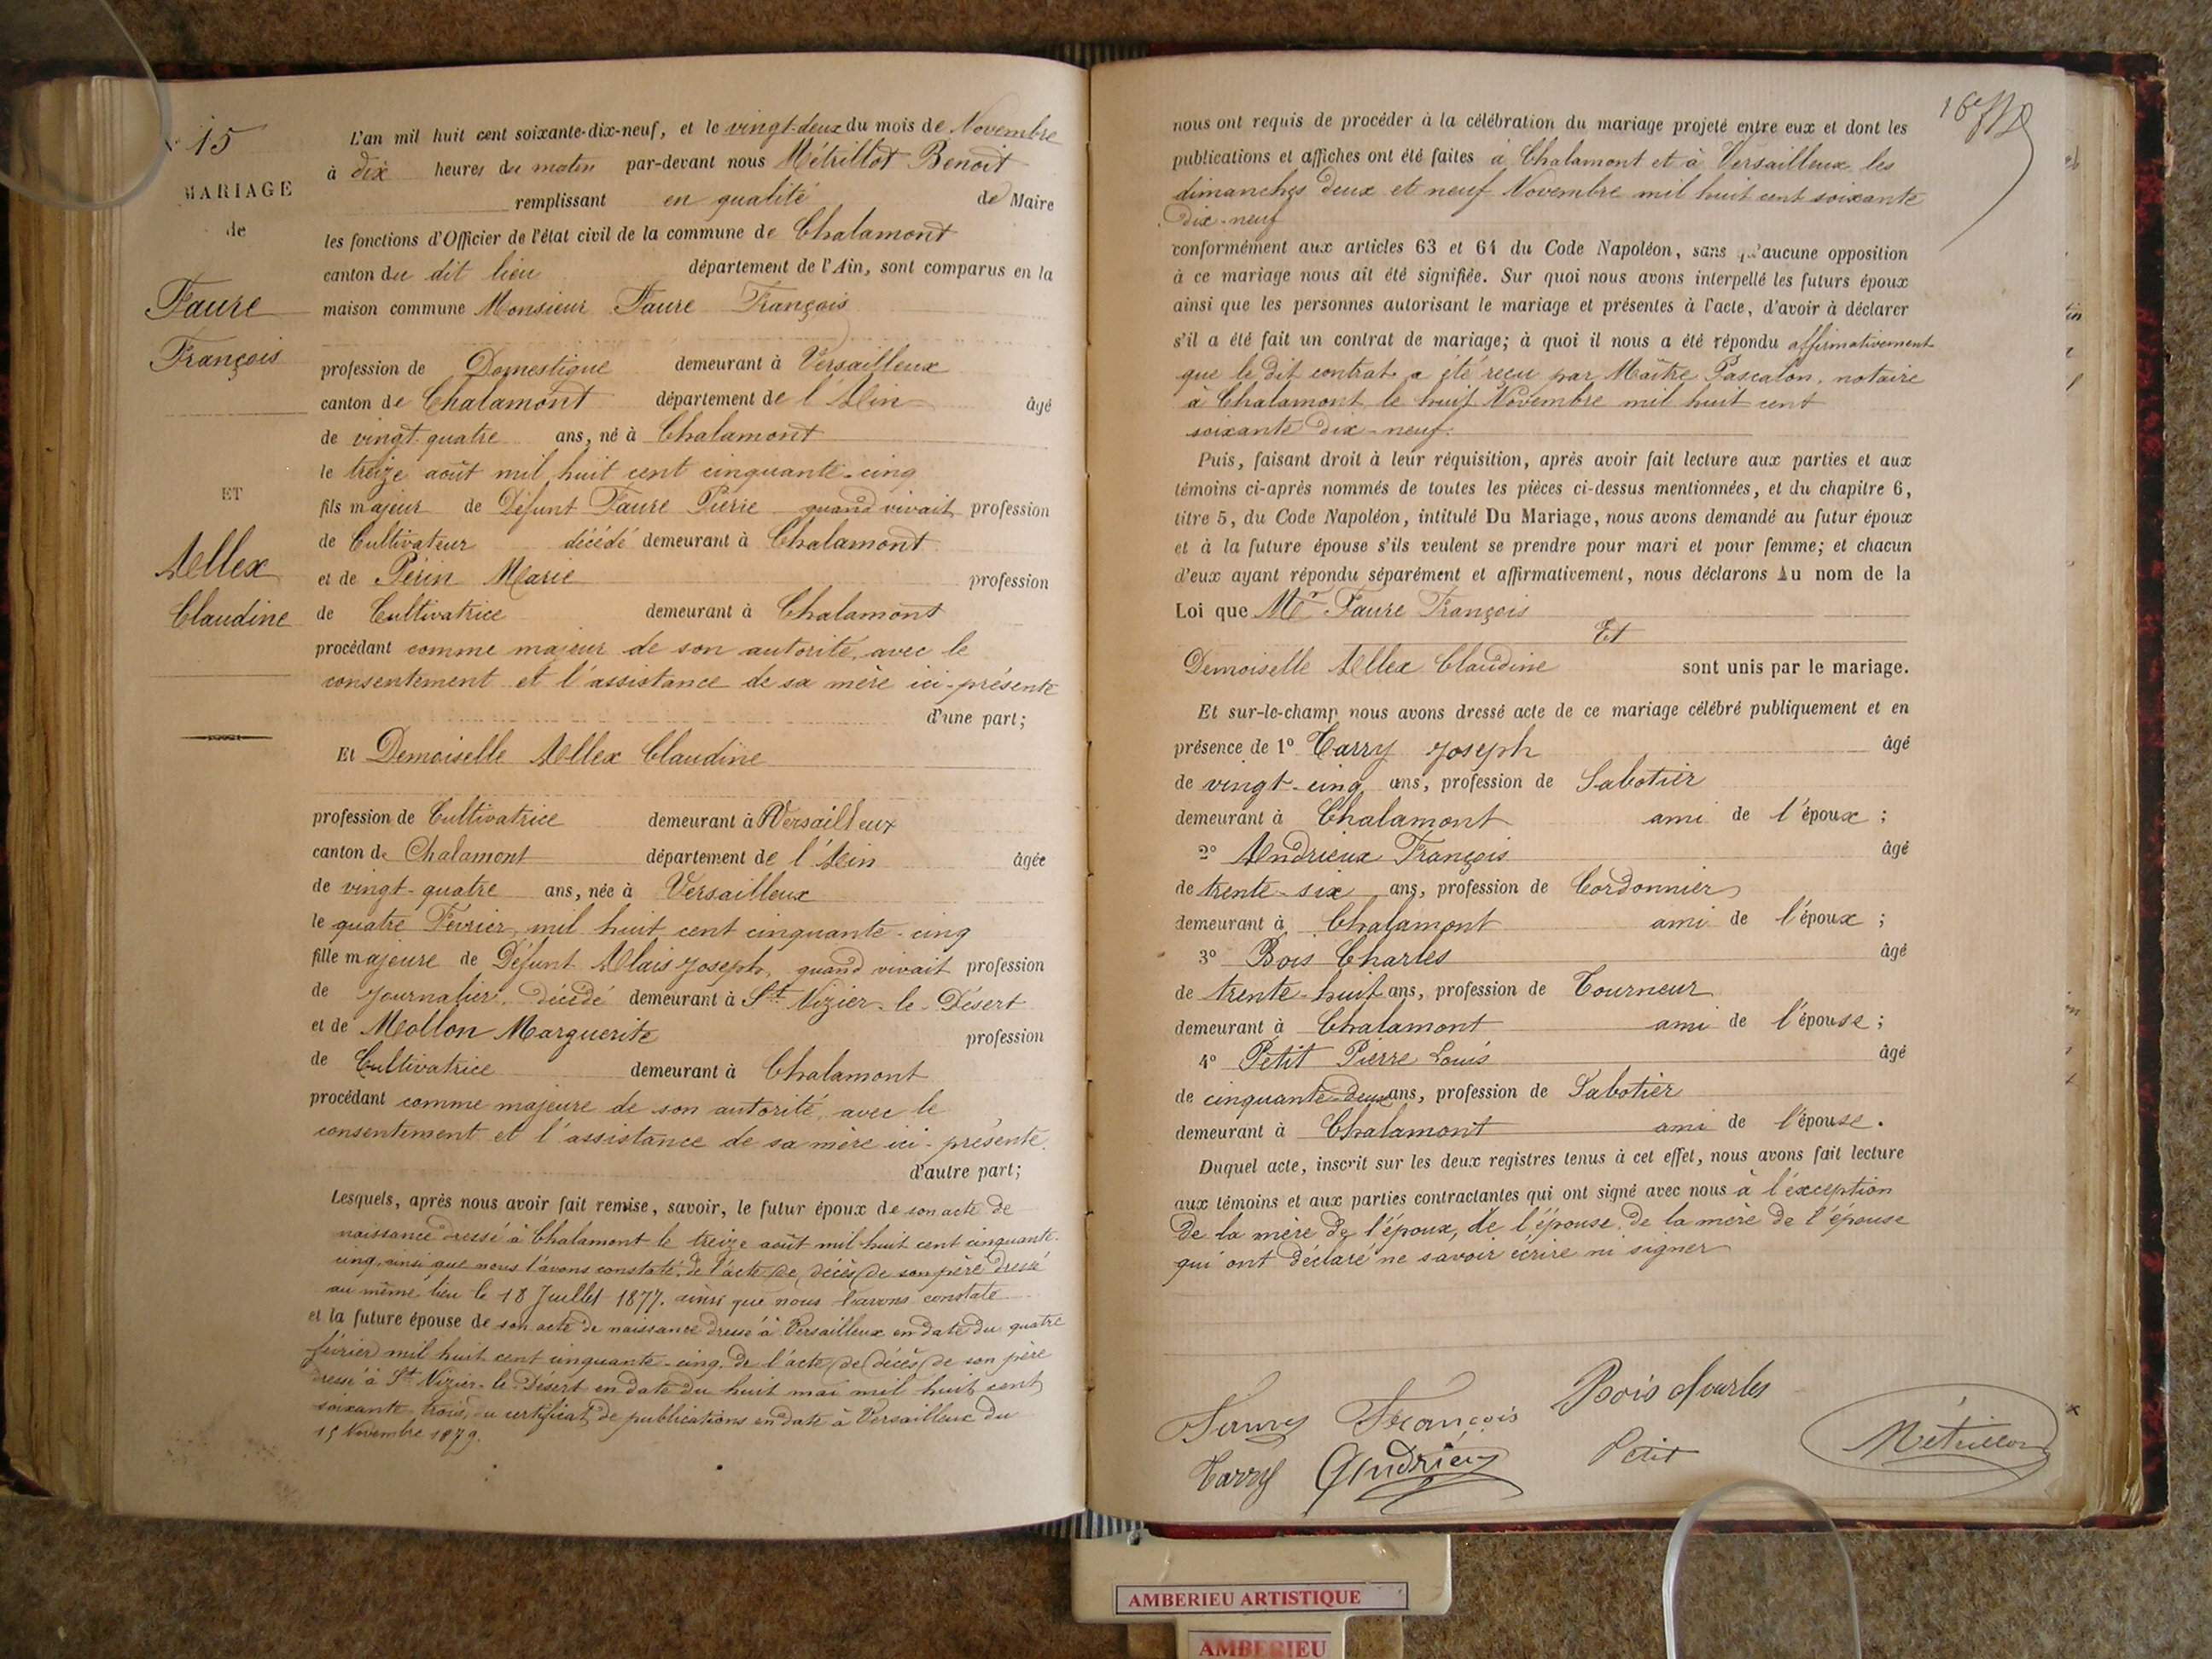 N° 15
MARIAGE
de
Faure
François
ET
Allex
Claudine
L'an mil huit cent soixante-dix-neuf, et le vingt-deux du mois de Novembre
à dix heures du matin par-devant nous Métrillot Benoit
remplissant en qualité de Maire
les fonctions d'Officier de l'état civil de la commune de Chalamont
canton du dit lieu département de l'Ain, sont comparus en la
maison commune Monsieur Faure François
profession de Domestique demeurant à Versailleux
canton de Chalamont département de l'Ain âgé
de vingt-quatre ans, né à Chalamont
le treize août mil huit cent cinquante-cinq
fils majeur de Défunt Faure Pierre quand vivait profession
de Cultivateur décédé demeurant à Chalamont
et de Périn Marie profession
de Cultivatrice demeurant à Chalamont
procédant comme majeur de son autorité, avec le
consentement et l'assistance de sa mère ici-présente
d'une part;
Et Demoiselle Allex Claudine
profession de Cultivatrice demeurant à Versailleux
canton de Chalamont département de l'Ain âgée
de vingt-quatre ans, née à Versailleux
le quatre Février mil huit cent cinquante-cinq
fille majeure de Défunt Alais Joseph, quand vivait profession
de Journalier. décédé demeurant à St Nizier-le-Désert
et de Mollon Marguerite profession
de Cultivatrice demeurant à Chalamont
procédant comme majeure de son autorité, avec le
consentement et l'assistance de sa mère ici-présente.
d'autre part;
Lesquels, après nous avoir fait remise, savoir, le futur époux de son acte de
naissance dressé à Chalamont le treize août mil huit cent cinquante-
cinq, ainsi que nous l'avons constaté, de l'acte de décès de son père dressé
au même lieu le 18 Juillet 1877. ainsi que nous l'avons constaté
et la future épouse de son acte de naissance dressé à Versailleux en date du quatre
février mil huit cent cinquante-cinq, de l'acte de décès de son père
dressé à St Nizier-le-Désert en date du huit mai mil huit cent
soixante-trois, du certificat de publications en date à Versailleux du
15 Novembre 1879.
16
nous ont requis de procéder à la célébration du mariage projeté entre eux et dont les
publications et affiches ont été faites à Chalamont et à Versailleux les
dimanches deux et neuf Novembre mil huit cent soixante
dix-neuf
conformément aux articles 63 et 64 du Code Napoléon, sans qu'aucune opposition
à ce mariage nous ait été signifiée. Sur quoi nous avons interpellé les futurs époux
ainsi que les personnes autorisant le mariage et présentes à l'acte, d'avoir à déclarer
s'il a été fait un contrat de mariage; à quoi il nous a été répondu affirmativement
que le dit contrat a été reçu par Maître Pascalon, notaire
à Chalamont le huit Novembre mil huit cent
soixante dix-neuf.
Puis, faisant droit à leur réquisition, après avoir fait lecture aux parties et aux
témoins ci-après nommés de toutes les pièces ci-dessus mentionnées, et du chapitre 6,
titre 5, du Code Napoléon, intitulé Du Mariage, nous avons demandé au futur époux
et à la future épouse s'ils veulent se prendre pour mari et pour femme; et chacun
d'eux ayant répondu séparément et affirmativement, nous déclarons Au nom de la
Loi que Mr Faure François
Et
Demoiselle Allex Claudine sont unis par le mariage.
Et sur-le-champ nous avons dressé acte de ce mariage célébré publiquement et en
présence de 1° Carry Joseph âgé
de vingt-cinq ans, profession de Sabotier
demeurant à Chalamont ami de l'époux ;
2° Andrieux François âgé
de trente-six ans, profession de Cordonnier
demeurant à Chalamont ami de l'époux ;
3° Bois Charles âgé
de trente-huit ans, profession de Tourneur
demeurant à Chalamont ami de l'épouse ;
4° Petit Pierre Louis âgé
de cinquante-deux ans, profession de Sabotier
demeurant à Chalamont ami de l'épouse.
Duquel acte, inscrit sur les deux registres tenus à cet effet, nous avons fait lecture
aux témoins et aux parties contractantes qui ont signé avec nous à l'exception
de la mère de l'époux, de l'épouse, de la mère de l'épouse
qui ont déclaré ne savoir écrire ni signer
François Bois Charles
Carry Andrieux Petit
AMBERIEU ARTISTIQUE
AMBERIEU